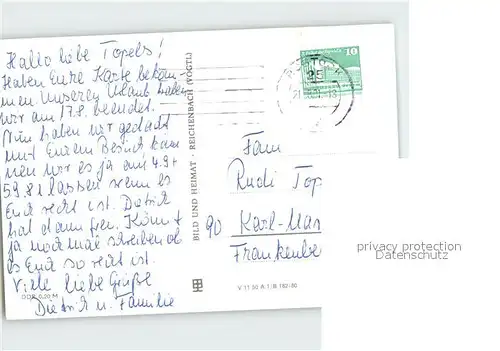 Hallo liebe Topels!
Haben Eure Karte bekom-
men. Unseren Urlaub haben
wir am 17.8. beendet.
Nun haben wir gedacht
mit Eurem Besuch kön
nen wir es ja am 4.9+
5.9.81 lassen wenn es
Euch recht ist. Dietrich
hat dann frei. Könnt
ja noch mal schreiben ob
es Euch so recht ist.
Viele liebe Grüße
Dietrich u. Familie
DDR 0,20 M
BILD UND HEIMAT · REICHENBACH (VOGTL)
10
25
Fam
Rudi Top
90 Karl-Mar
Frankenbe
privacy protection
Datenschutz
V 11 50 A 1/B 162/80